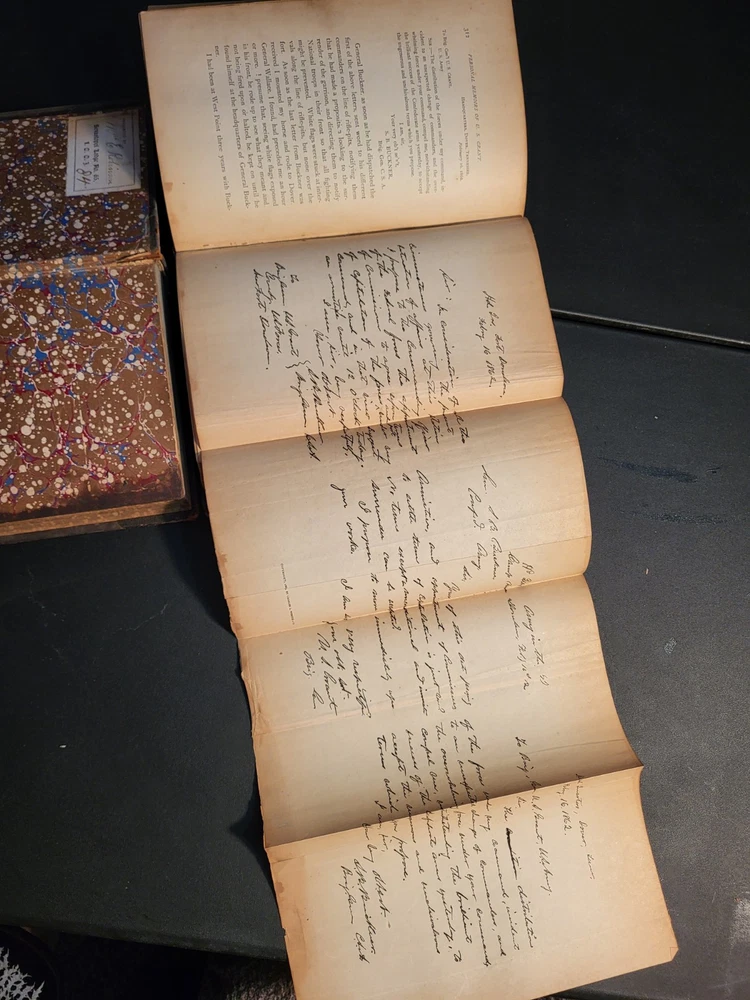 312 PERSONAL MEMOIRS OF U. S. GRANT.
HEADQUARTERS, DOVER, TENNESSEE,
February 16, 1862.
To Brig. Gen'l U. S. GRANT,
U. S. Army.
SIR:—The distribution of the forces under my command, in-
cident to an unexpected change of commanders, and the over-
whelming force under your command, compel me, notwithstanding
the brilliant success of the Confederate arms yesterday, to accept
the ungenerous and unchivalrous terms which you propose.
I am, sir,
Your very ob't se'v't,
S. B. BUCKNER,
Brig. Gen. C. S. A.
General Buckner, as soon as he had dispatched the
first of the above letters, sent word to his different
commanders on the line of rifle-pits, notifying them
that he had made a proposition looking to the sur-
render of the garrison, and directing them to notify
National troops in their front so that all fighting
might be prevented. White flags were stuck at inter-
vals along the line of rifle-pits, but none over the
fort. As soon as the last letter from Buckner was
received I mounted my horse and rode to Dover.
General Wallace, I found, had preceded me an hour
or more. I presume that, seeing white flags exposed
in his front, he rode up to see what they meant and,
not being fired upon or halted, he kept on until he
found himself at the headquarters of General Buck-
ner.
I had been at West Point three years with Buck-
Hd Qrs, Fort Donelson,
Feby. 16 1862.
Sir: In consideration of all the
circumstances governing the present
situation of affairs at this station
I propose to the Commanding Officer
of the Federal forces the appointment
of Commissioners to agree upon terms
of capitulation of the forces and fort under my
command, and in that view suggest
an armistice until 12 o'clock today.
I am, sir, very respectfully
Your obt servt
S. B. Buckner
Brig Gen. C.S.A
To
Brigadier Genl U. S. Grant
Comdg U. S. forces
near Fort Donelson.
Hd Qrs, Army in the Field
Camp near Donelson, Feby 16th
Gen. S. B. Buckner,
Confed. Army
Sir:
Yours of this date proposing
Armistice, and appointment of Commissioners
to settle terms of Capitulation is just received.
No terms except unconditional and immediate
surrender can be accepted.
I propose to move immediately upon
your works.
I am Sir, very respectfully
Your obt. svt.
U. S. Grant
Brig. Gen.
Hd Qrs, Dover, Tenn.
Feby 16 1862.
To Brig. Gen U. S. Grant, U.S. Army.
Sir:
The distribution
of the forces under my command, incident
to an unexpected change of commanders, and
the overwhelming force under your command
compel me, notwithstanding the brilliant
success of the Confederate arms yesterday, to
accept the ungenerous and unchivalrous
terms which you propose.
I am, sir,
Your very obt svt
S. B. Buckner
Brig Gen. C.S.A